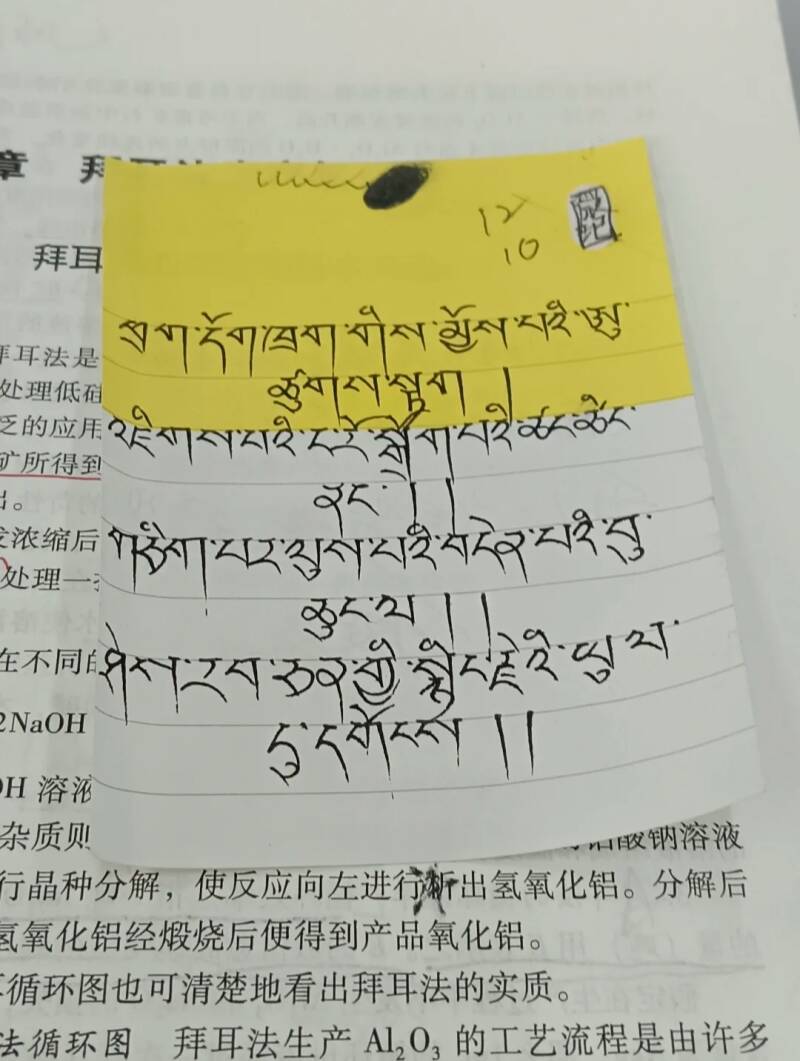 章 拜耳法
12
10
拜耳
拜耳法是
处理低硅
泛的应用
矿所得到
出。
发浓缩后
处理一
在不同
2NaOH
OH 溶液
杂质则
ཁྲག་དྲོག་ཁྲག་གིས་མྱོས་པའི་ཨུ་
ཚུགས་སྟག །
འཇིགས་པའི་ང་རོ་སྒྲོག་པའི་ཚང་ཚིང་
ནང་།།
གཅིག་པར་ལུས་པའི་བདེན་པའི་བུ་
ཆུང་ལ །།
ཤེས་རབ་ཅན་གྱི་སྤྱང་ཇེའི་ཡུལ་
དུ་དགོངས །།
铝酸钠溶液
行晶种分解，使反应向左进行析出氢氧化铝。分解后
氢氧化铝经煅烧后便得到产品氧化铝。
循环图也可清楚地看出拜耳法的实质。
法循环图 拜耳法生产 Al₂O₃ 的工艺流程是由许多